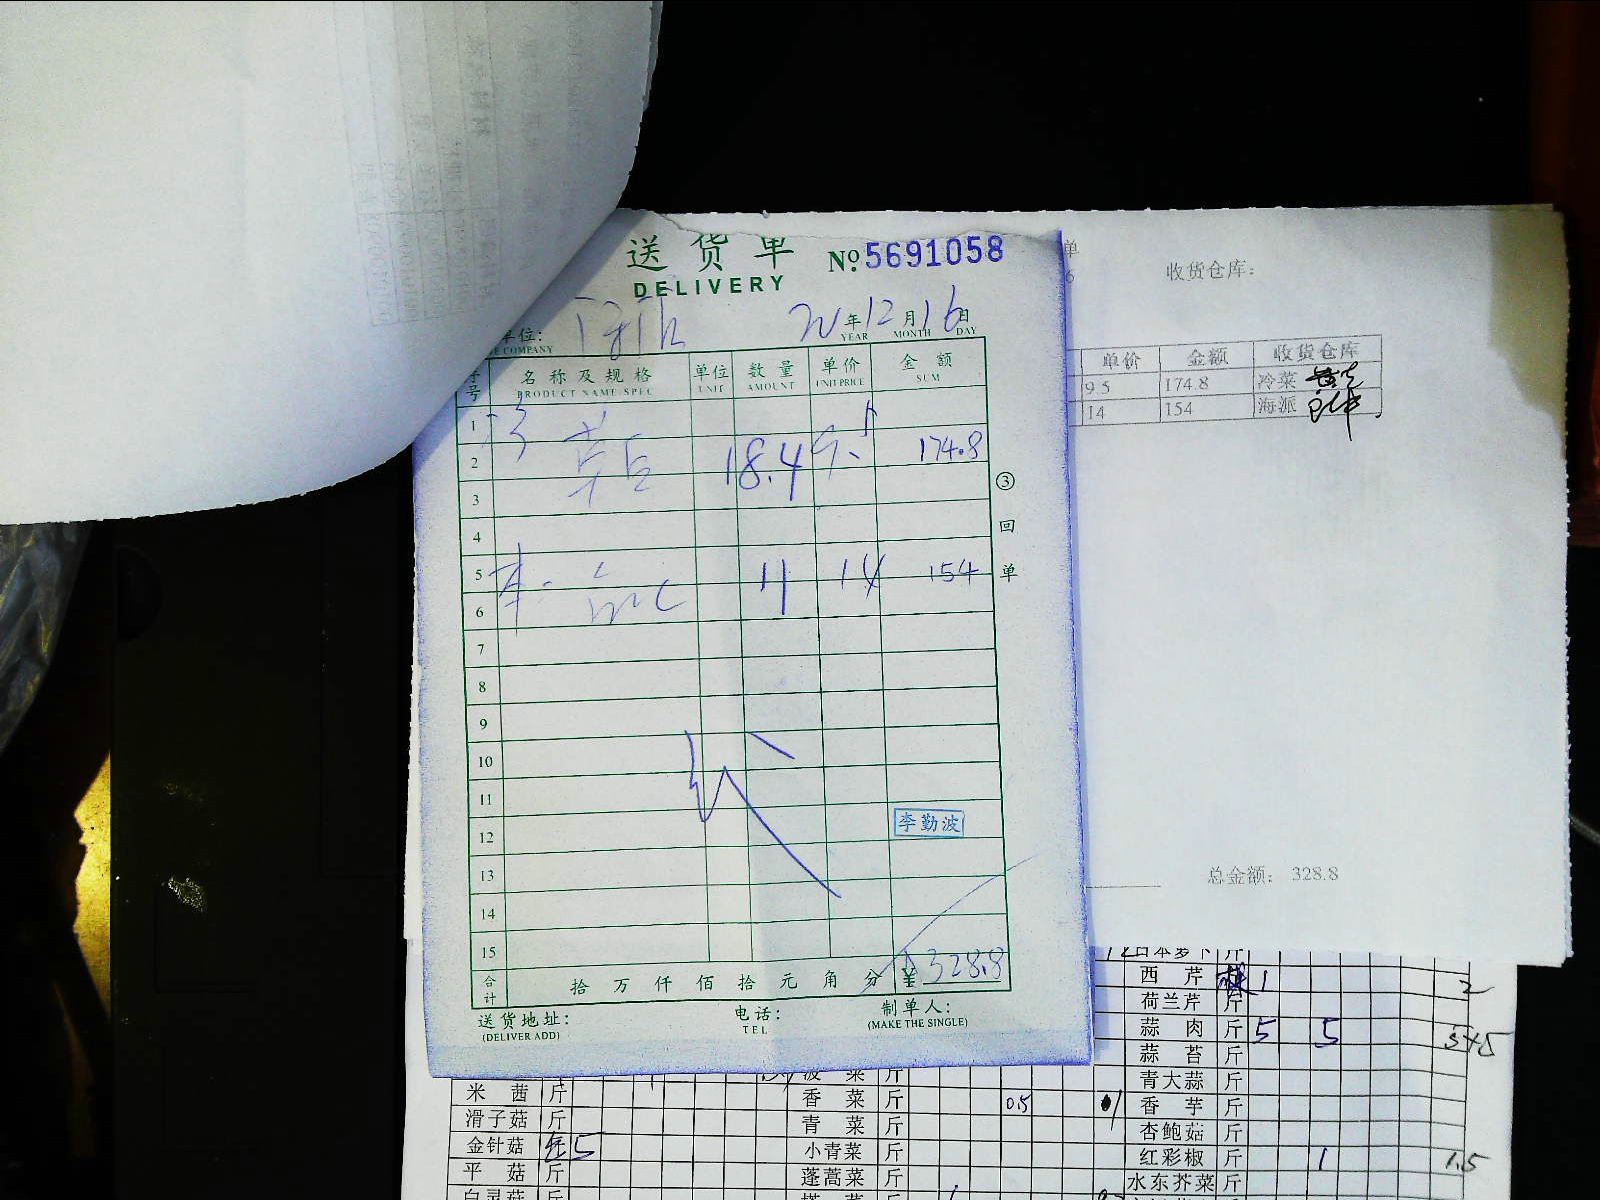 送货单 №.5691058
DELIVERY
单位: 年12月16日
COMPANY YEAR MONTH DAY
序号 名称及规格 单位 数量 单价 金额
PRODUCT NAME SPEC UNIT AMOUNT UNIT PRICE SUM
1
2 18.4 9.5 174.8
3
4
5 11 14 154
6
7
8
9
10
11
12 李勤波
13
14
15
合计 拾万仟佰拾元角分 ¥ 328.8
送货地址: 电话: 制单人:
(DELIVER ADD) TEL (MAKE THE SINGLE)
③回单
单
6 收货仓库:
单价 金额 收货仓库
9.5 174.8 冷菜
14 154 海派
总金额: 328.8
日本萝卜 斤
西芹 1 2
荷兰芹 斤
蒜肉 斤 5 5 5+5
蒜苔 斤
青大蒜 斤
香芋 斤
杏鲍菇 斤
红彩椒 斤 1 1.5
水东芥菜 斤
菠菜 斤
香菜 斤 0.5
青菜 斤
小青菜 斤
蓬蒿菜 斤
米茜 斤
滑子菇 斤
金针菇 5
平菇 斤
白灵菇 斤